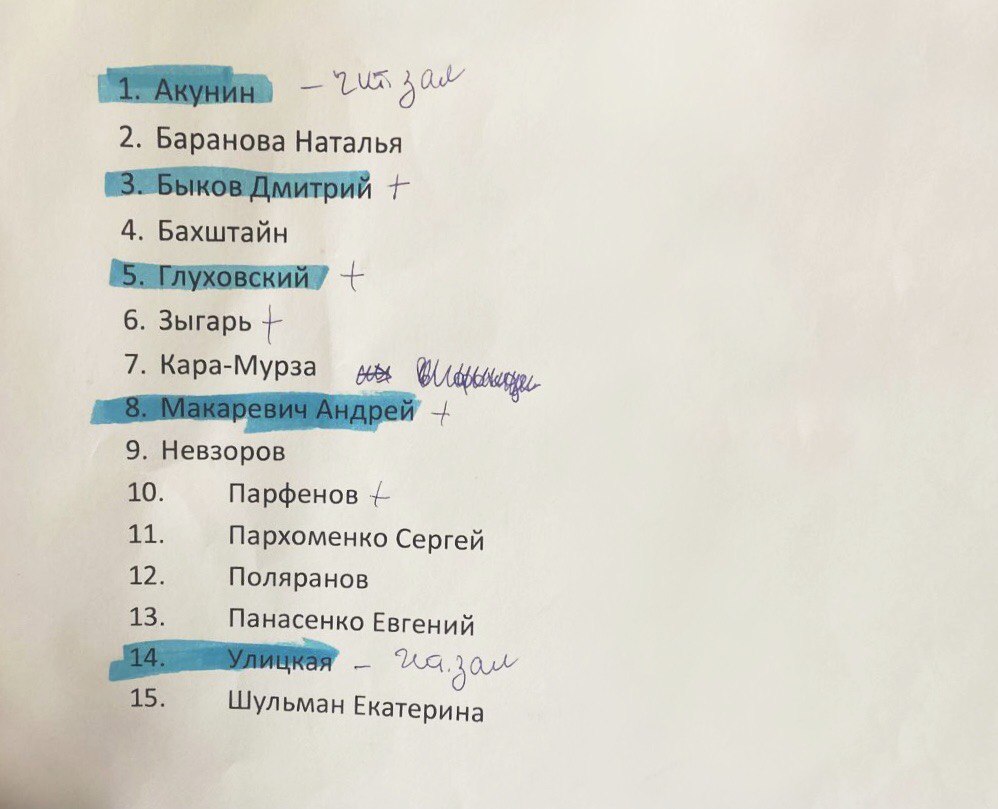 1. Акунин – чит. зал
2. Баранова Наталья
3. Быков Дмитрий +
4. Бахштайн
5. Глуховский +
6. Зыгарь +
7. Кара-Мурза
8. Макаревич Андрей +
9. Невзоров
10. Парфенов +
11. Пархоменко Сергей
12. Поляранов
13. Панасенко Евгений
14. Улицкая – чит. зал
15. Шульман Екатерина